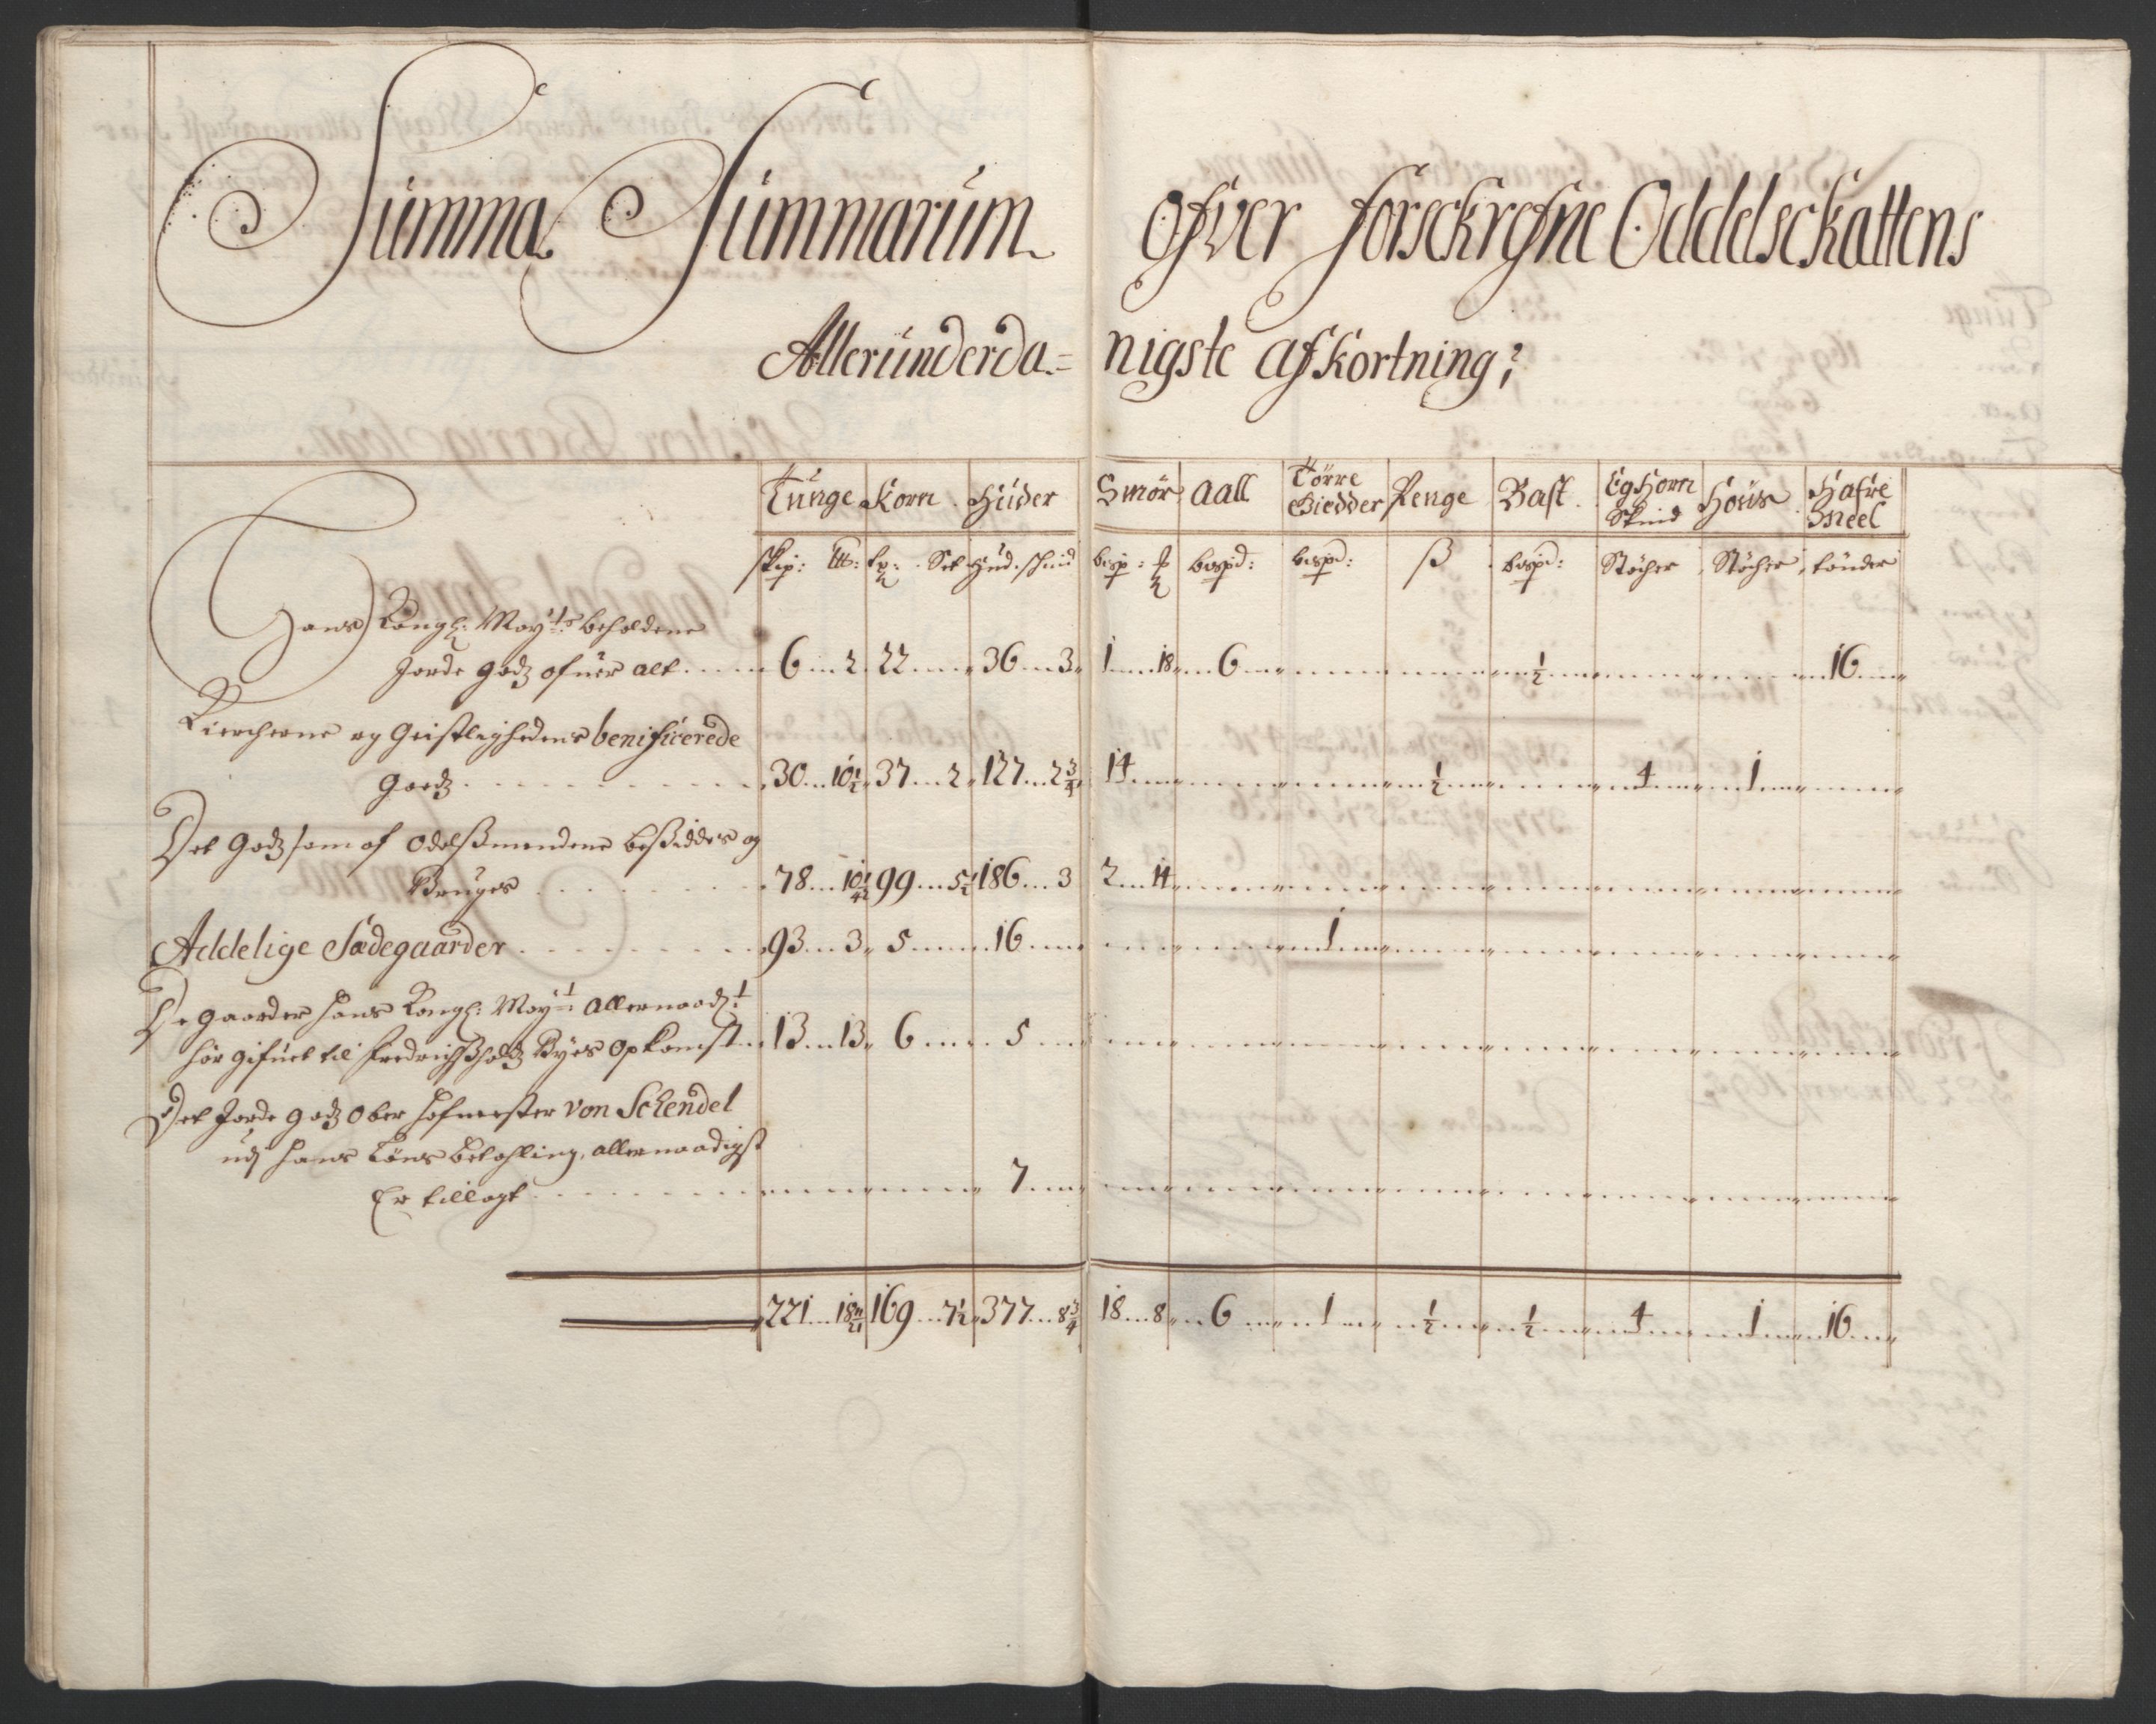 Summa Summarum ofver forsckrefne Oddelsckattens
Allerunderda= nigste afkortning;
Tunge Korn Huder Smør Aall Tørre Giedder Penge Bast Eghorn Skind Hous Hafre Meel
skip: ltt: tr: Set Hud. skind bisp: bispd: bispd: ß bispd: Støcher Støcher tønder
Hans Kongl: May:ts beholdene
Jorde godz ofuer alt 6 2 22 36 3 1 18 6 ½ 16
Kiercherne og Geistlighedens benificerede
Godz 30 10½ 37 2 127 2¾ 14 ½ 4 1
Det Godz som af Odelsmendene besiddes og
Bruges 78 99 5½ 186 3 2 14
Addelige Sædegaarder 93 3 5 16 1
De gaarder hans Kongl: May:t allernaadt
hør gifuet til Fredrichßholdz Byes opkomst 13 13 6 5
Det Jorde godz Ober Hofmester Von Schendel
udj hans Løns betahling, allernaadigst
Er tillagt 7
221 18 169 7½ 377 8¾ 18 8 6 1 ½ ½ 4 1 16